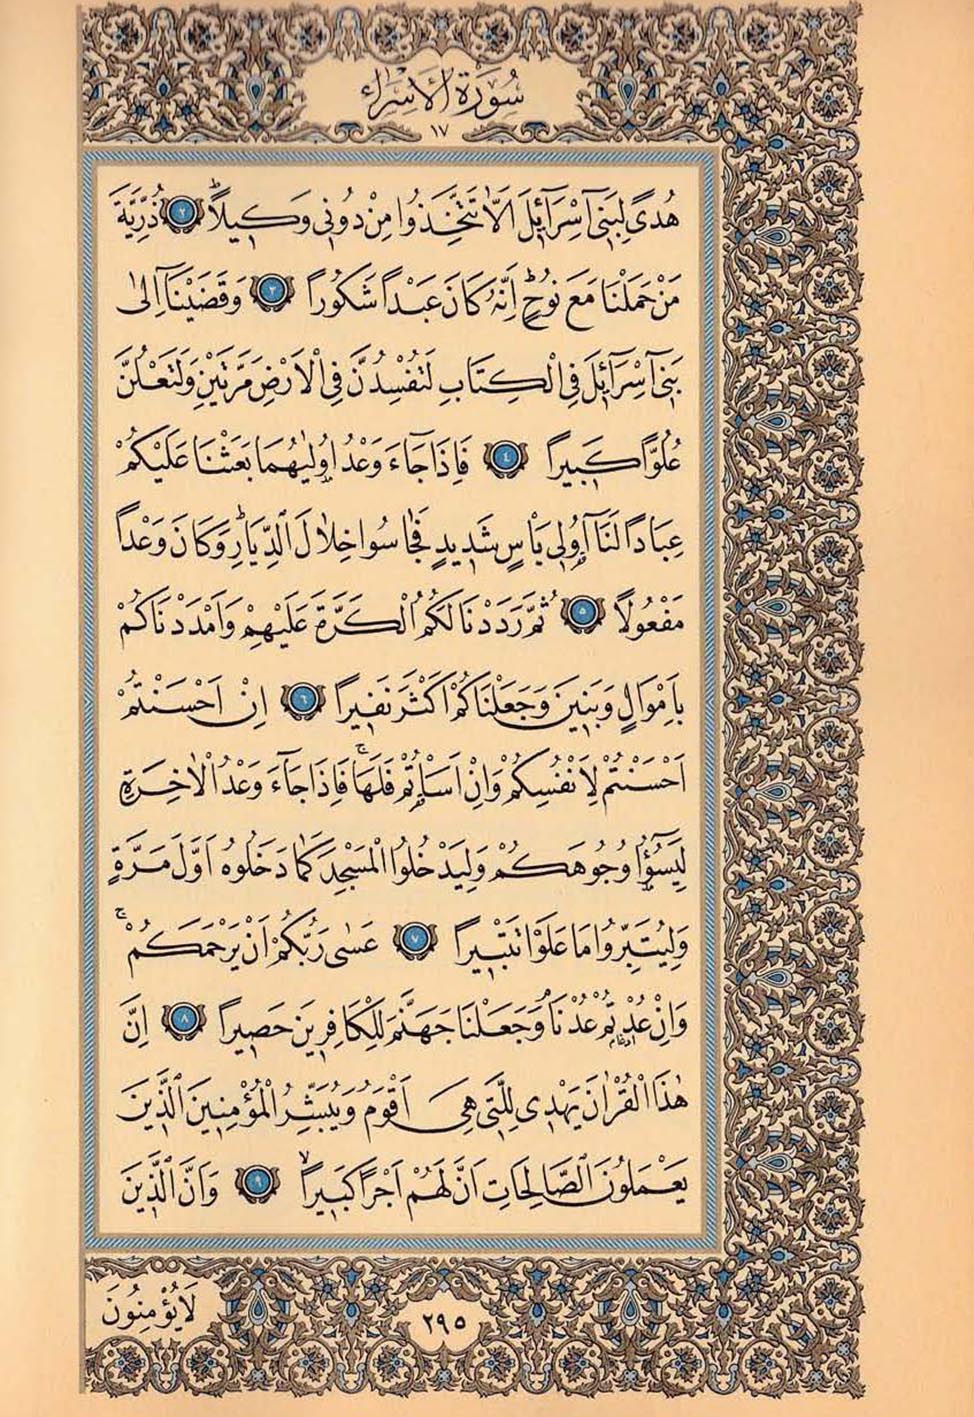 سُورَةُ الْاِسْرَاءِ
١٧
هُدًى لِبَنٓى اِسْرَٓائٖلَ اَلَّا تَتَّخِذُوا مِنْ دُونٖى وَكٖيلاًؕ ﴿٢﴾ ذُرِّيَّةَ
مَنْ حَمَلْنَا مَعَ نُوحٍؕ اِنَّهُ كَانَ عَبْداً شَكُوراً ﴿٣﴾ وَقَضَيْنَٓا اِلٰى
بَنٓى اِسْرَٓائٖلَ فِى الْكِتَابِ لَتُفْسِدُنَّ فِى الْاَرْضِ مَرَّتَيْنِ وَلَتَعْلُنَّ
عُلُوًّا كَبٖيراً ﴿٤﴾ فَاِذَا جَٓاءَ وَعْدُ اُولٰيهُمَا بَعَثْنَا عَلَيْكُمْ
عِبَاداً لَنَٓا اُولٖى بَاْسٍ شَدٖيدٍ فَجَاسُوا خِلَالَ الدِّيَارِؕ وَكَانَ وَعْداً
مَفْعُولاً ﴿٥﴾ ثُمَّ رَدَدْنَا لَكُمُ الْكَرَّةَ عَلَيْهِمْ وَاَمْدَدْنَاكُمْ
بِاَمْوَالٍ وَبَنٖينَ وَجَعَلْنَاكُمْ اَكْثَرَ نَفٖيراً ﴿٦﴾ اِنْ اَحْسَنْتُمْ
اَحْسَنْتُمْ لِاَنْفُسِكُمْ وَاِنْ اَسَاْتُمْ فَلَهَاۚ فَاِذَا جَٓاءَ وَعْدُ الْاٰخِرَةِ
لِيَسُٓؤُا وُجُوهَكُمْ وَلِيَدْخُلُوا الْمَسْجِدَ كَمَا دَخَلُوهُ اَوَّلَ مَرَّةٍ
وَلِيُتَبِّرُوا مَا عَلَوْا تَتْبٖيراً ﴿٧﴾ عَسٰى رَبُّكُمْ اَنْ يَرْحَمَكُمْۚ
وَاِنْ عُدْتُمْ عُدْنَاۢ وَجَعَلْنَا جَهَنَّمَ لِلْكَافِرٖينَ حَصٖيراً ﴿٨﴾ اِنَّ
هٰذَا الْقُرْاٰنَ يَهْدٖى لِلَّتٖى هِىَ اَقْوَمُ وَيُبَشِّرُ الْمُؤْمِنٖينَ الَّذٖينَ
يَعْمَلُونَ الصَّالِحَاتِ اَنَّ لَهُمْ اَجْراً كَبٖيراًۙ ﴿٩﴾ وَاَنَّ الَّذٖينَ
لَا يُؤْمِنُونَ
٢٩٥